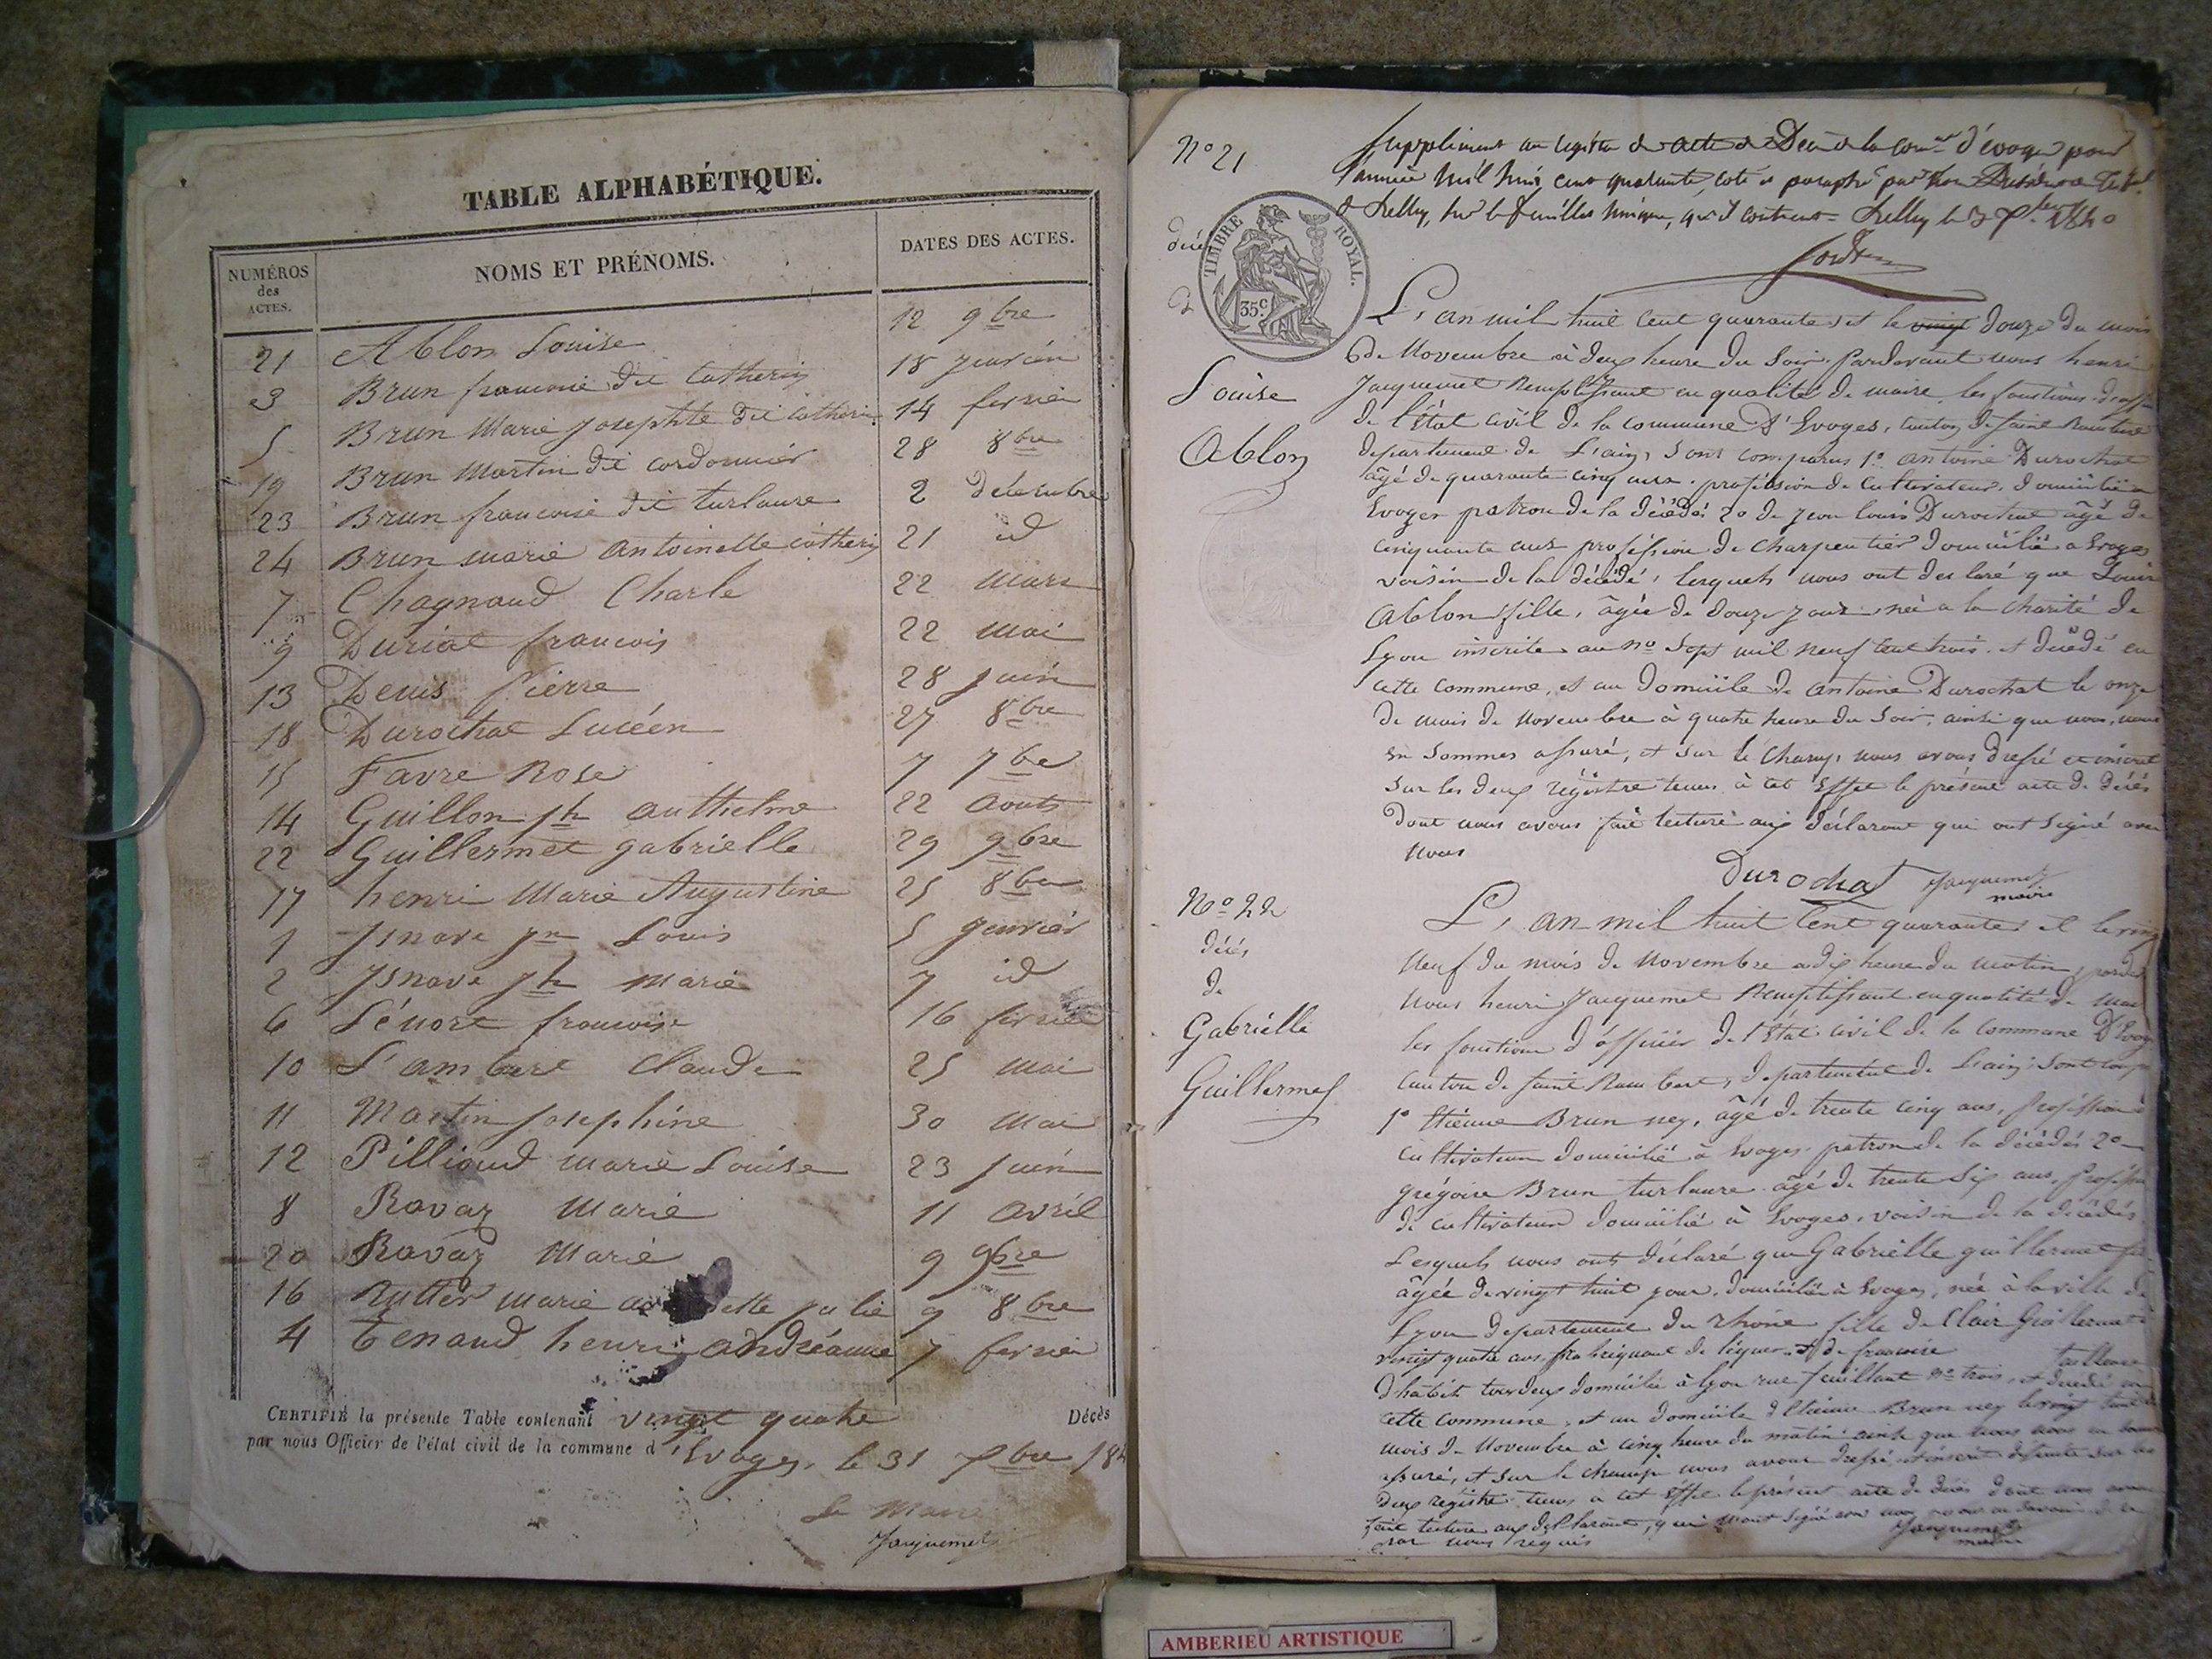 TABLE ALPHABÉTIQUE.
NUMÉROS des ACTES. NOMS ET PRÉNOMS. DATES DES ACTES.
21 Ablon Louise 12 9bre
3 Brun francoise dit Catherin 18 janvien
5 Brun Marie Josephte dit Catherin 14 fevrier
19 Brun Martin dit cordonnier 28 8bre
23 Brun francoise dit turlaure 2 décembre
24 Brun marie antoinette catherin 21 id
7 Chagnaud Charle 22 Mars
9 Duriat francois 22 Mai
13 Denis Pierre 28 juin
18 Durochat Lucéen 27 8bre
15 Favre Rose 7 7bre
14 Guillon jh anthelme 22 Aouts
22 Guillermet gabrielle 29 9bre
17 henri Marie Augustine 25 8bre
1 jsnave jn Louis 5 jenvier
2 jsnave jh Marie 7 id
6 Lénore francoise 16 fevrier
10 L'ambert Claude 25 Mai
11 Martin josephine 30 Mai
12 Pilliond marie Louise 23 juin
8 Ravaz Marie 11 avril
20 Ravaz Marie 9 9bre
16 Rutter marie julie 9 8bre
4 tenaud henri andréanne 7 fevrier
CERTIFIÉ la présente Table contenant vingt quatre Décès
par nous Officier de l'état civil de la commune d'Evoges, le 31 Xbre 184
Le Maire
Jacquemet
N° 21
Suppliment au registre de acte de Décè de la comne d'évoges pour
l'année Mil huis cent quarante, coté et paraphé par
le feuillet unique, qu'il contient Belley le 3 1840
TIMBRE ROYAL.
35 c.
décé
d
Louise
Ablon
L'an mil huit Cent quarante et le vingt douze du mois
de Novembre à deux heure du Soir, Pardevant nous henri
Jacquemet Remplissant en qualité de maire, les fonctions
de l'état civil de la commune d'Evoges, canton de Saint Rambert
departement de L'ain, Sont comparus 1° antoine Durochat
âgé de quarante cinq ans, profession de Cultivateur, domicilié a
Evoges patron de la décédé, 2o de jean louis Durochat âgé de
cinquante ans profession de charpentier domicilié a Evoges
voisin de la décédé, lesquels nous ont declaré que Louise
Ablon fille, âgée de douze jours, née a la charité de
Lyon inscrite au no Sept mil neuf cent trois et décédé en
cette commune, et au domicile de antoine Durochat le onze
de mois de Novembre à quatre heure du Soir, ainsi que nous nous
en Sommes assuré, et Sur le Champ, nous avons dressé et inscrit
Sur les deux régistre tenus à cet Effet le présent acte de décés
Dont nous avons fait lecture aux déclarant qui ont Signé avec
Nous
Durochat Jacquemet
maire
N° 22
décés
de
Gabriélle
Guillermet
L'an mil huit Cent quarante et le vingt
Neuf du mois de Novembre a dix heure du matin, pardev
Nous henri Jacquemet Remplissant en qualité de Mai
les fonction d'officier de l'état civil de la commune D'Evoge
Canton de Saint Rambert, departement de L'ain, Sont comp
1° Etienne Brun ney, âgé de trente cinq ans, profession
cultivateur domicilié à Evoges patron de la décédés 2o
grégoire Brun turlaure âgé de trente Six ans, profession
de cultivateur domicilié à Evoges, voisin de la décédés
Lesquels nous ont déclaré que Gabriélle guillermet
âgée de vingt huit jour, domiciliée à Evoges, née à la ville de
Lyon departement du rhône fille de Clair Guillermet
vingt quatre ans, fabriquant de et de francoise tailleuse
d'habit tous deux domicilié à Lyon rue feuillant no trois, et décédé en
cette commune, et au domicile d'Etienne Brun ney le vingt huit
mois de Novembre à cinq heure du matin ainsi que nous nous en
assuré, et Sur le champ nous avons dressé et inscrit Sur les
deux registre tenus a cet Effet le présent acte de décés dont nous avons
fait lecture aux déclarant, qui n'ont Signé
par nous requis
Jacquemet
maire
AMBERIEU ARTISTIQUE